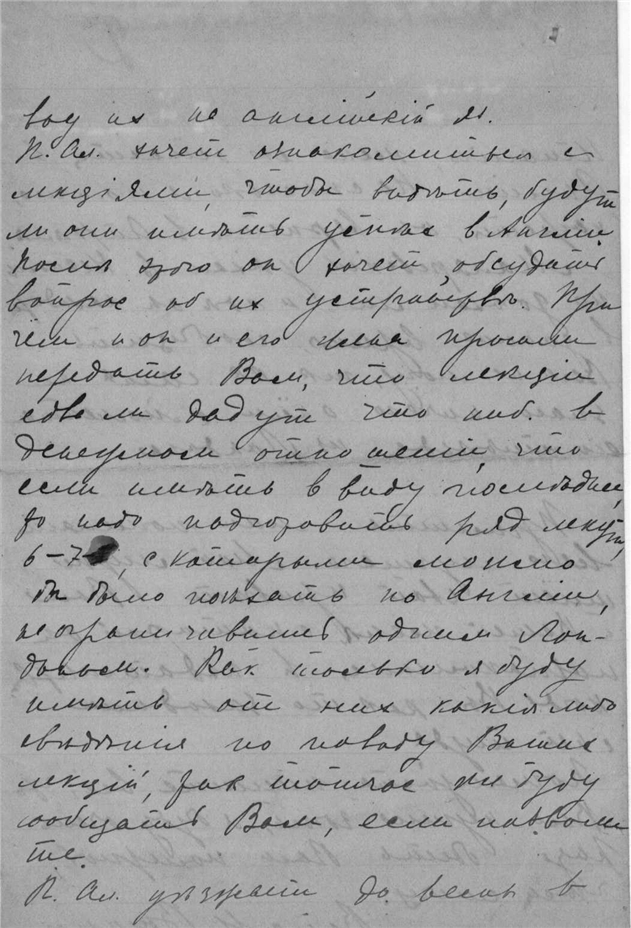 вод их на англійскій яз.
П. Ал. хочет ознакомиться с
лекціями, чтобы видѣть, будут
ли они имѣть успѣх в Англіи.
Послѣ этого он хочет обсудить
вопрос об их устройствѣ. При
чем и он и его жена просили
передать Вам, что лекціи
едва ли дадут что ниб. в
денежном отношеніи, что
если имѣть в виду послѣднее,
то надо подготовить ряд лекцій,
6-7, с которыми можно
бы было поѣхать по Англіи,
не ограничившись одним Лон-
доном. Как только я буду
имѣть от них какія либо
свѣдѣнія по поводу Ваших
лекцій, так тотчас же буду
сообщать Вам, если позволи
те.
П. Ал. уѣзжает до весны в